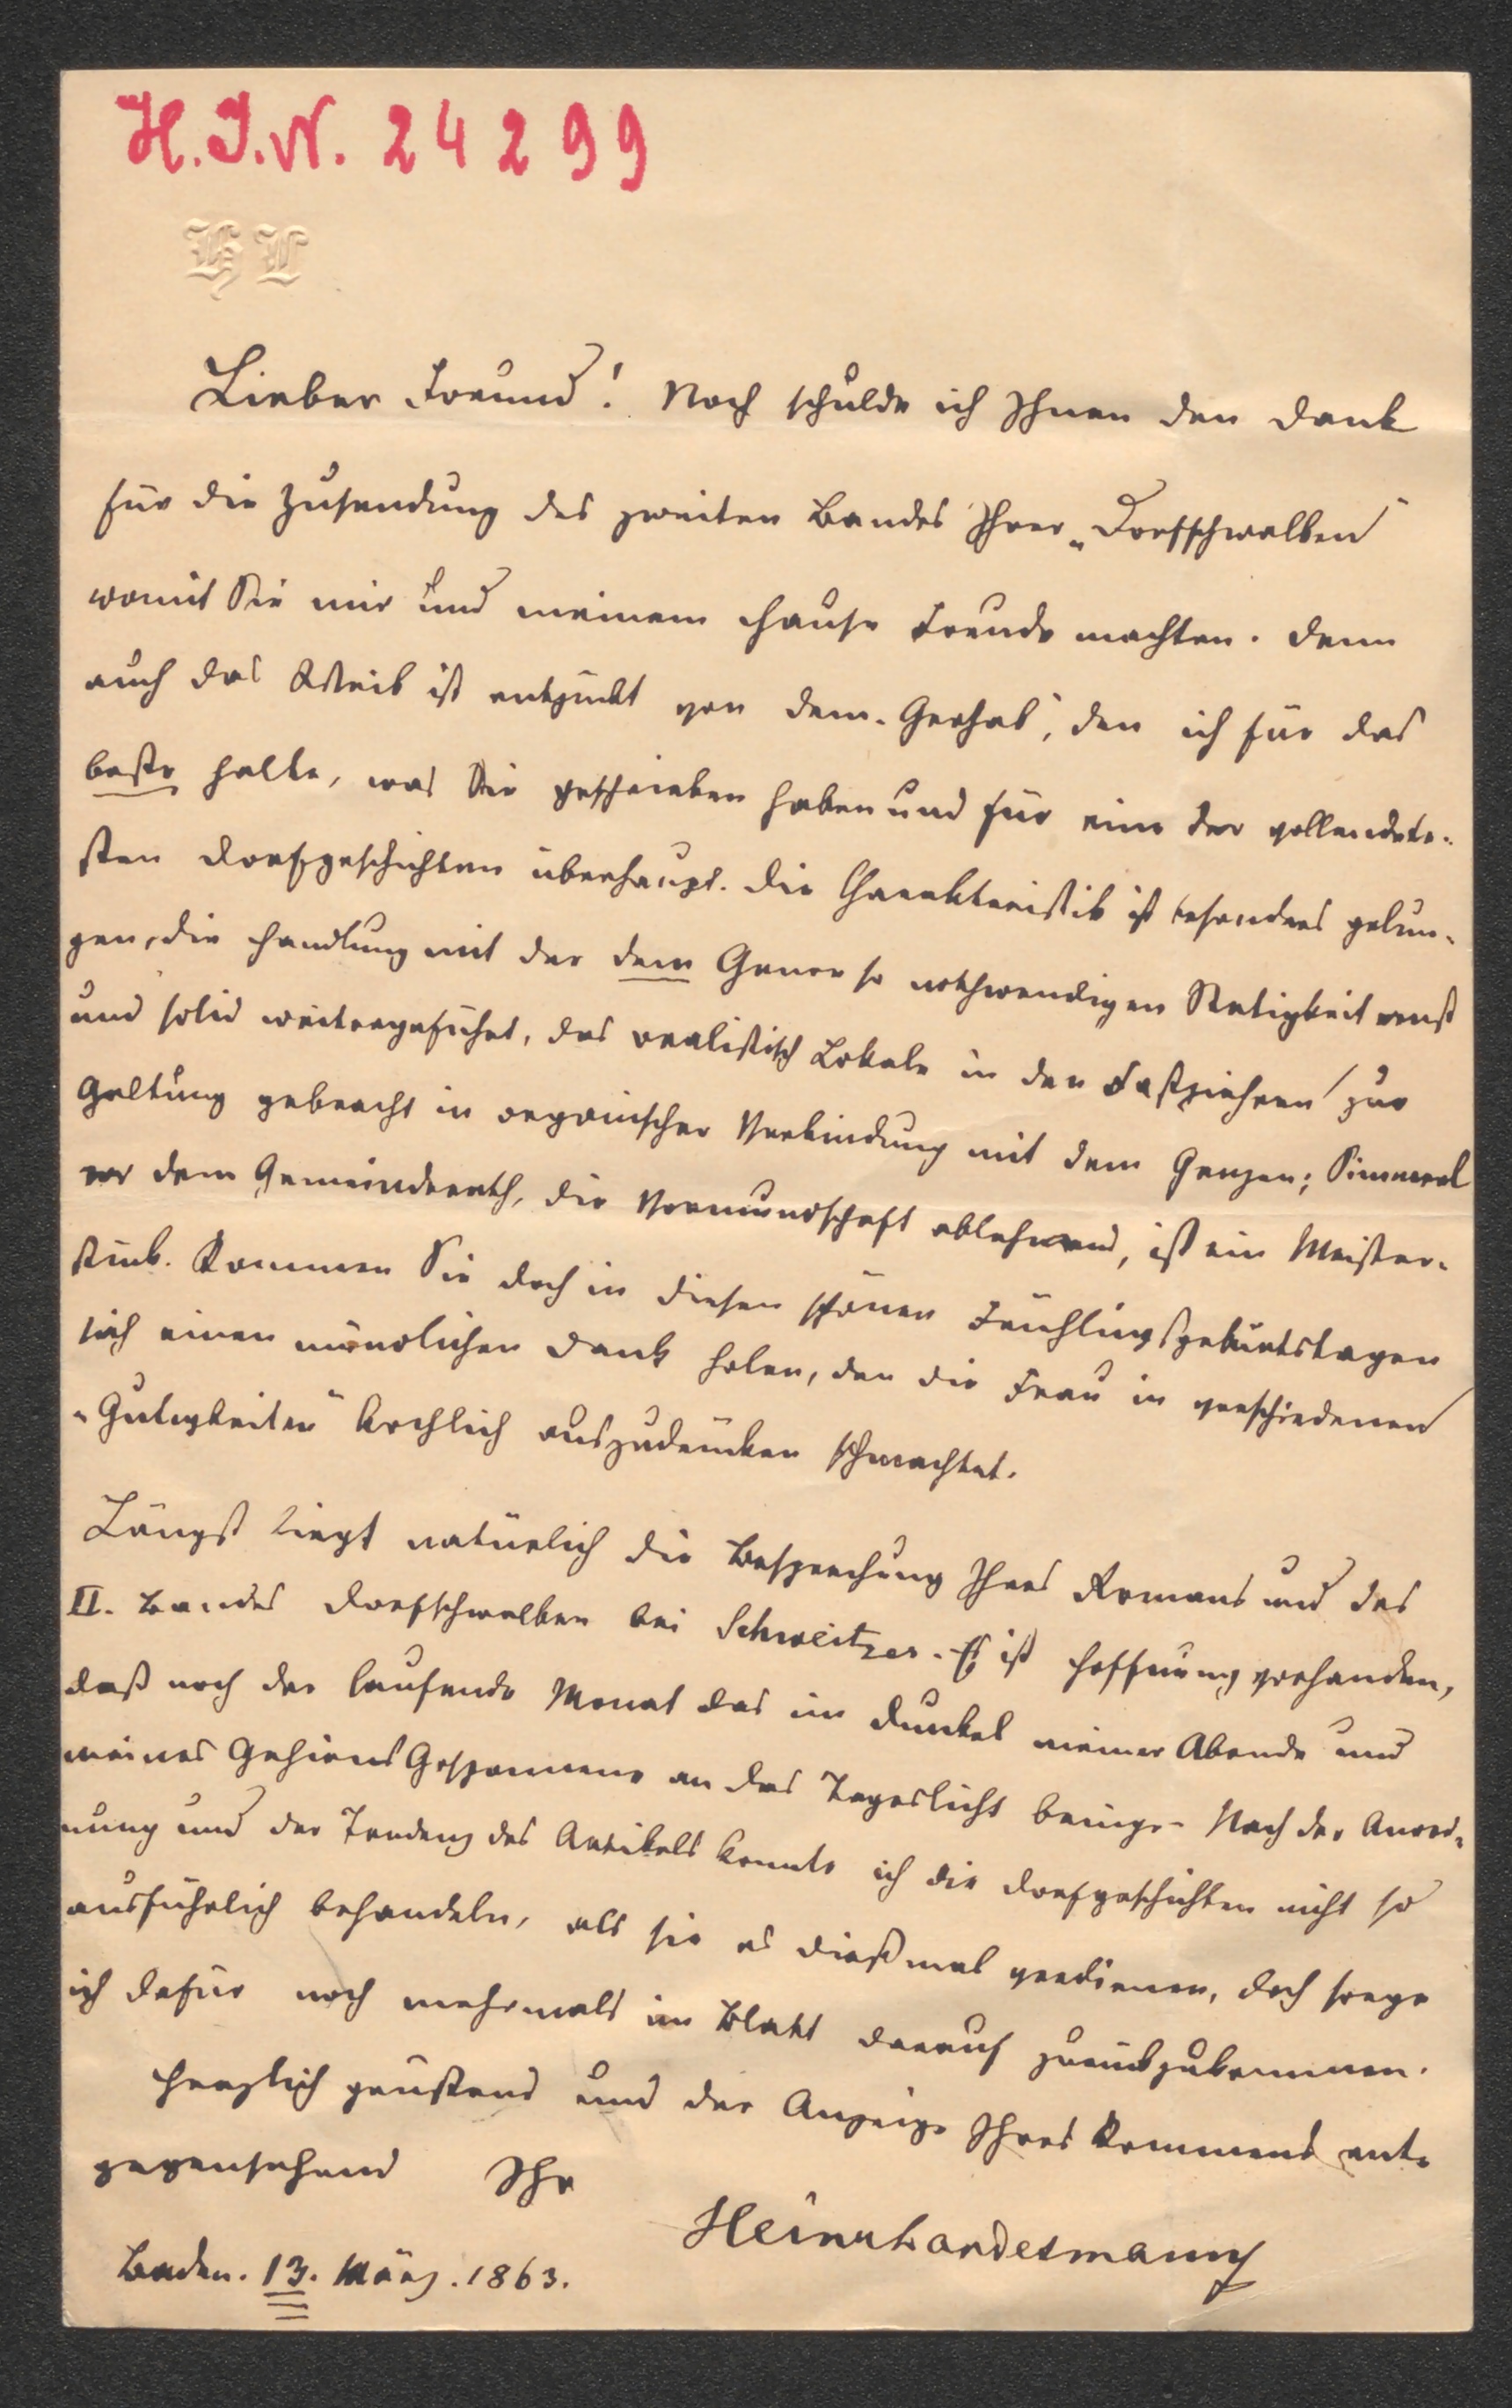 H.I.N. 24299
HL
Lieber Freund! Noch schulde ich Ihnen den Dank
für die Zusendung des zweiten Bandes Ihrer „Dorfschwalben"
womit Sie mir und meinem Hause Freude machten. Denn
auch das Weib ist entzückt von dem „Gerhab", den ich für das
beste halte, was Sie geschrieben haben und für eine der vollendete-
sten Dorfgeschichten überhaupt. Die Charakteristik ist besonders gelun-
gen, die Handlung mit der dem Genre so nothwendigen Stetigkeit ernst
und solid weitergeführt, das realistisch Lokale in den Fastziehern zur
Geltung gebracht in organischer Verbindung mit dem Ganzen; Simmerl
vor dem Gemeinderath, die Vormundschaft ablehnend, ist ein Meister-
stück. Kommen Sie doch in diesen schönen Frühlingsgeburtstagen
sich einen mündlichen Dank holen, den die Frau in verschiedenen
„Gutigkeiten" kochlich auszudrücken schmachtet.
Längst liegt natürlich die Besprechung Ihres Romans und des
II. Bandes Dorfschwalben bei Schweitzer. Es ist Hoffnung vorhanden,
daß noch der laufende Monat das im Dunkel meiner Abende und
meines Gehirns Gesponnene an das Tageslicht bringe. Nach der Anord-
nung und der Tendenz des Artikels konnte ich die Dorfgeschichten nicht so
ausführlich behandeln, als sie es dießmal verdienen, doch sorge
ich dafür noch mehrmals im Blatt darauf zurückzukommen.
Herzlich grüßend und der Anzeige Ihres Kommens ent-
gegensehend Ihr
Heinr Landesmann
Baden. 13. März. 1863.